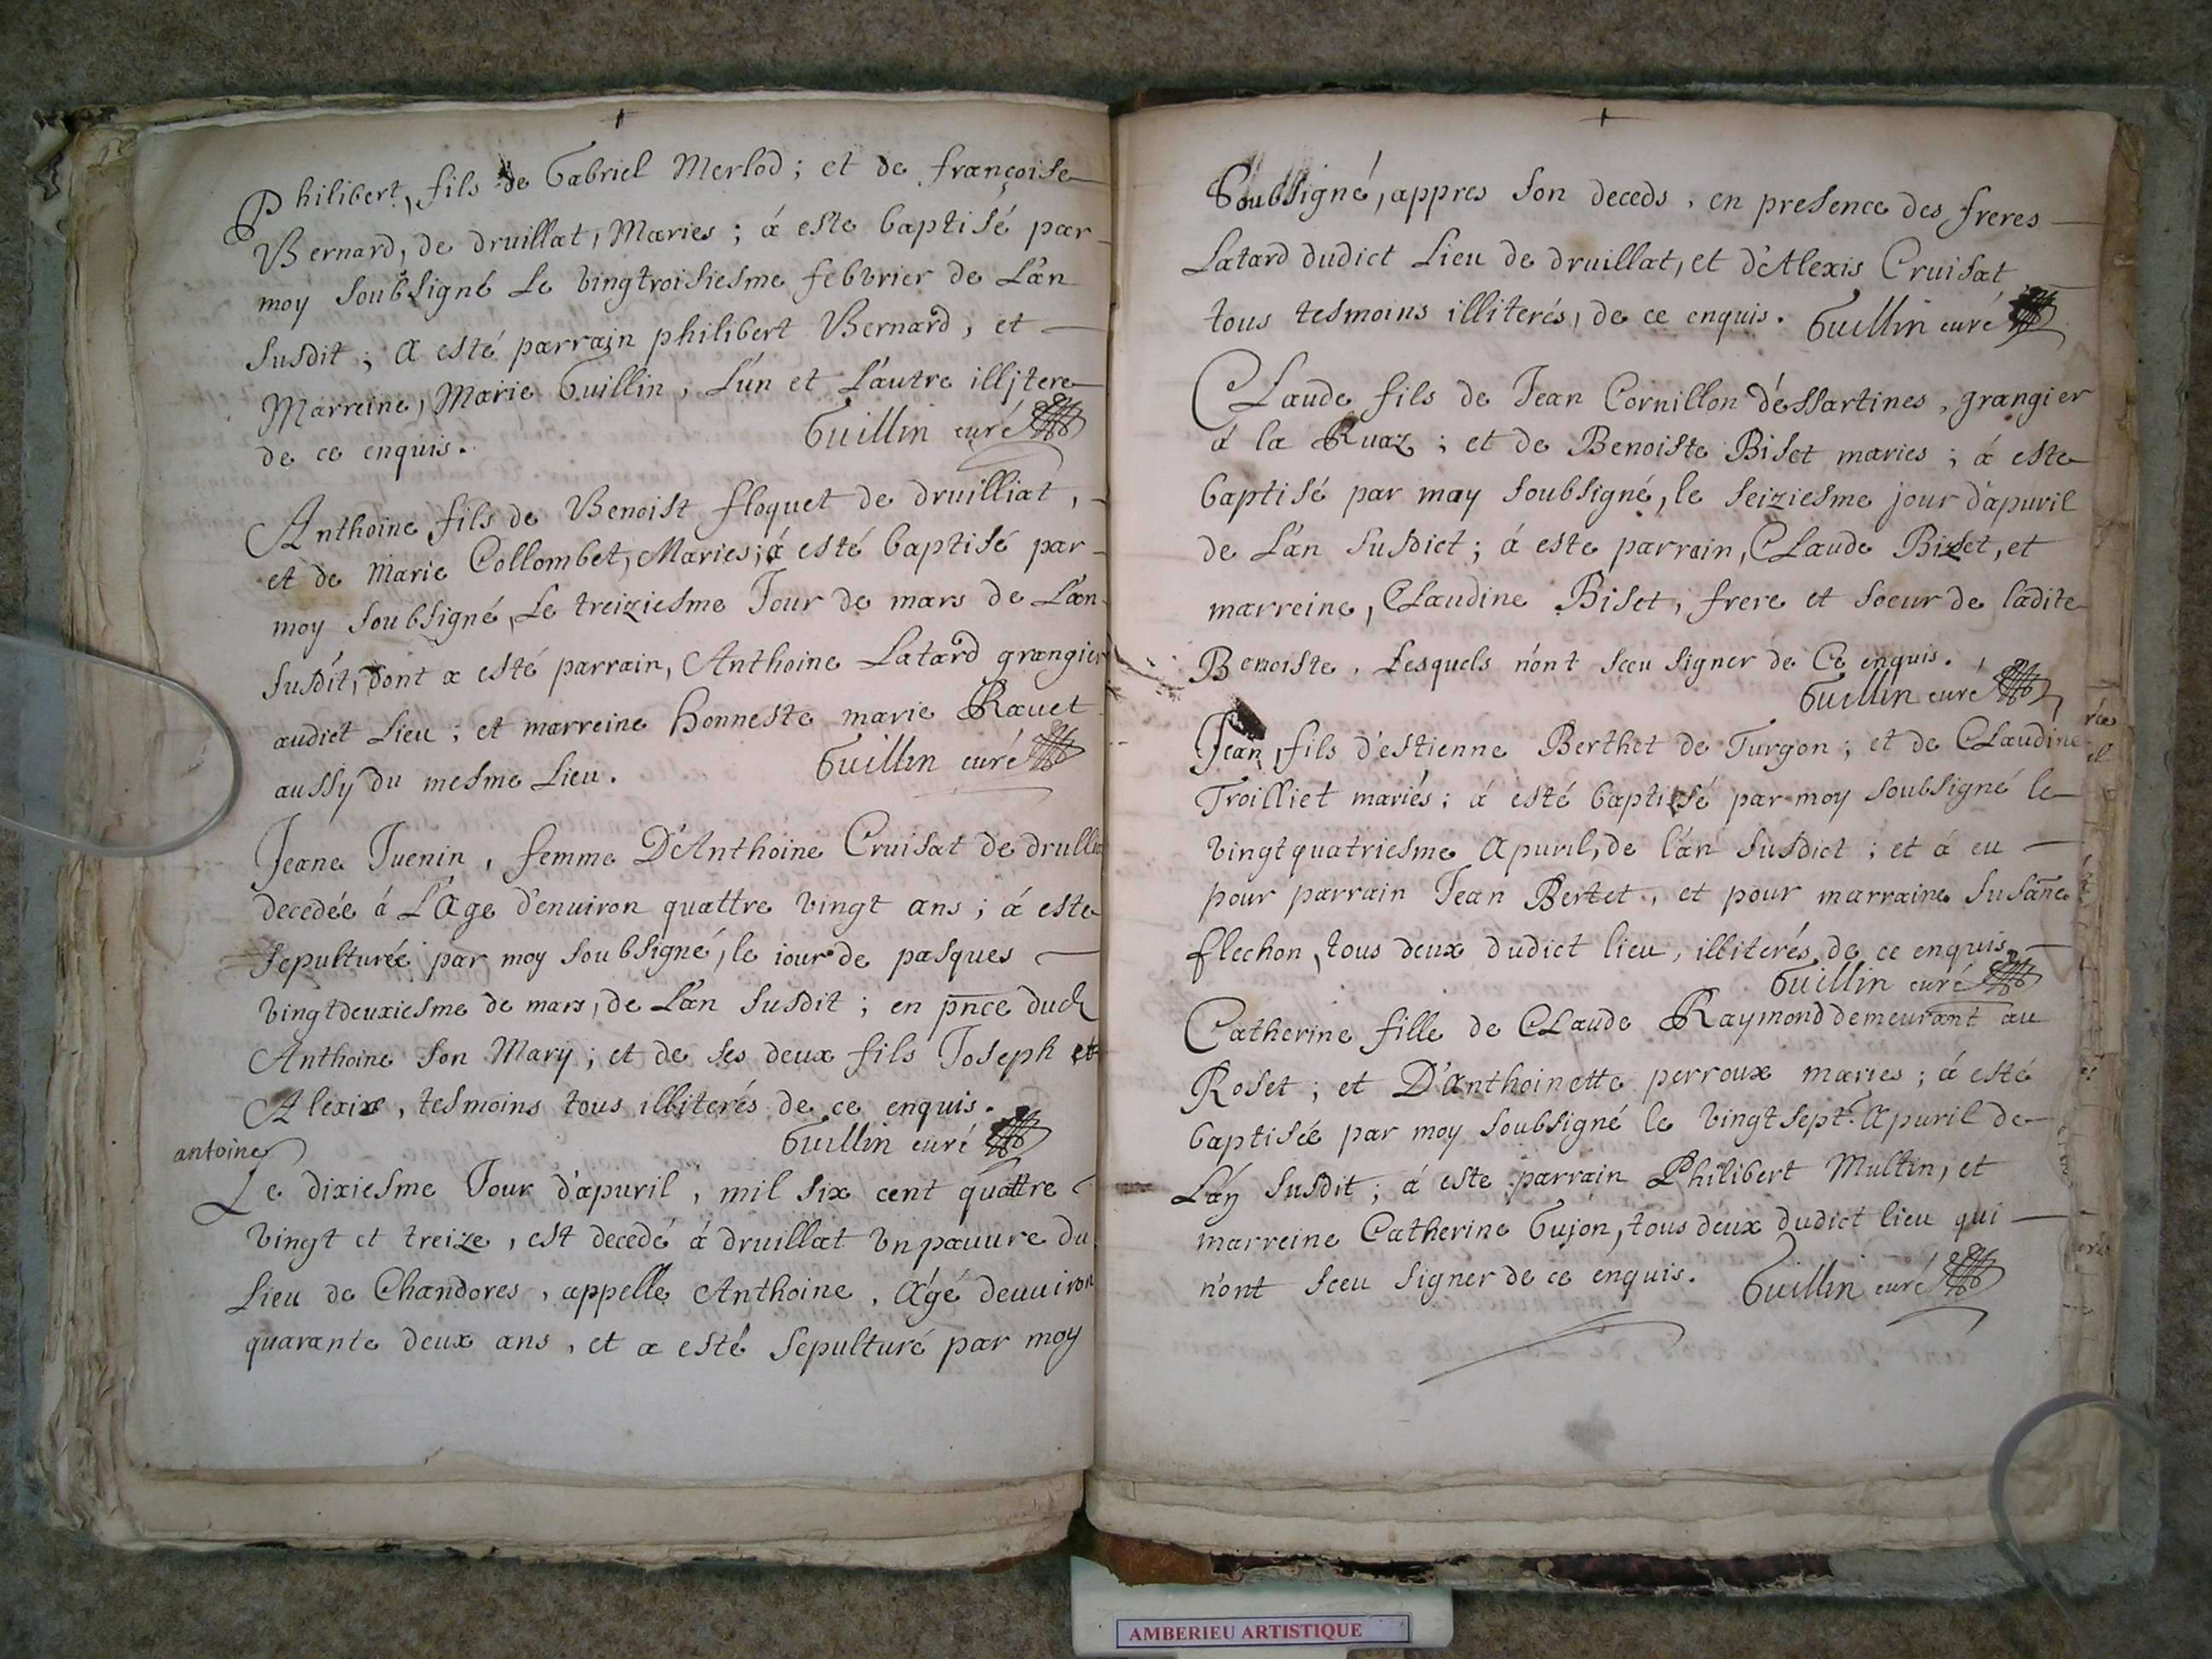 Philibert, fils de Gabriel Merlod; et de françoise
Bernard, de druillat, Maries; á este baptisé par
moy soubsigné Le vingtroisiesme febvrier de L'an
susdit; A esté parrain philibert Bernard, et
Marreine, Marie Guillin, L'un et L'autre illjtere
de ce enquis. Guillin curé
Anthoine fils de Benoist floquet de druilliat,
et de Marie Collombet, Maries; á esté baptisé par
moy soubsigné, Le treiziesme Jour de mars de L'an
susdit, dont a esté parrain, Anthoine Latard grangier
audict Lieu; et marreine honneste marie Rauet
aussy du mesme Lieu. Guillin curé
Jeane Juenin, femme D'Anthoine Cruisat de drullat
decedée á L'Age d'enuiron quattre vingt ans; á este
sepulturée par moy soubsigné, le iour de pasques
vingtdeuxiesme de mars, de L'an susdit; en pnce dud
Anthoine son Mary; et de ses deux fils Joseph et
Alexix, tesmoins tous illiterés de ce enquis.
Guillin curé
antoine
Le dixiesme Jour d'apuril, mil six cent quattre
vingt et treize, est decedé á druillat vn pauure du
Lieu de Chandores, appelle Anthoine, Agé denuiron
quarante deux ans, et a esté sepulturé par moy
Soubsigné, appres son deceds, en presence des freres
Latard dudict Lieu de druillat, et d'Alexis Cruisat
tous tesmoins illiterés, de ce enquis. Guillin curé
CLaude fils de Jean Cornillon dessartines, grangier
á la Ruaz; et de Benoiste Biset maries; á este
baptisé par moy soubsigné, le seiziesme jour d'apuril
de L'an susdict; á este parrain, CLaude Bizet, et
marreine, CLaudine Biset, frere et soeur de ladite
Benoiste, Lesquels n'ont sceu signer de Ce enquis.
Guillin curé
Jean, fils d'estienne Berthet de Turgon; et de CLaudine
Troilliet mariés; á esté baptisé par moy soubsigné le
vingtquatriesme Apuril, de l'an susdict; et á eu
pour parrain Jean Bertet, et pour marraine susane
flechon, tous deux dudict lieu, illiterés de ce enquis
Guillin curé
Catherine fille de CLaude Raymond demeurant au
Roset; et D'Anthoinette perroux maries; á esté
baptisée par moy soubsigné le vingtsept. Apuril de
L'an susdit; á este parrain Philibert Multin, et
marreine Catherine Gujon, tous deux dudict lieu qui
n'ont sceu signer de ce enquis. Guillin curé
AMBERIEU ARTISTIQUE